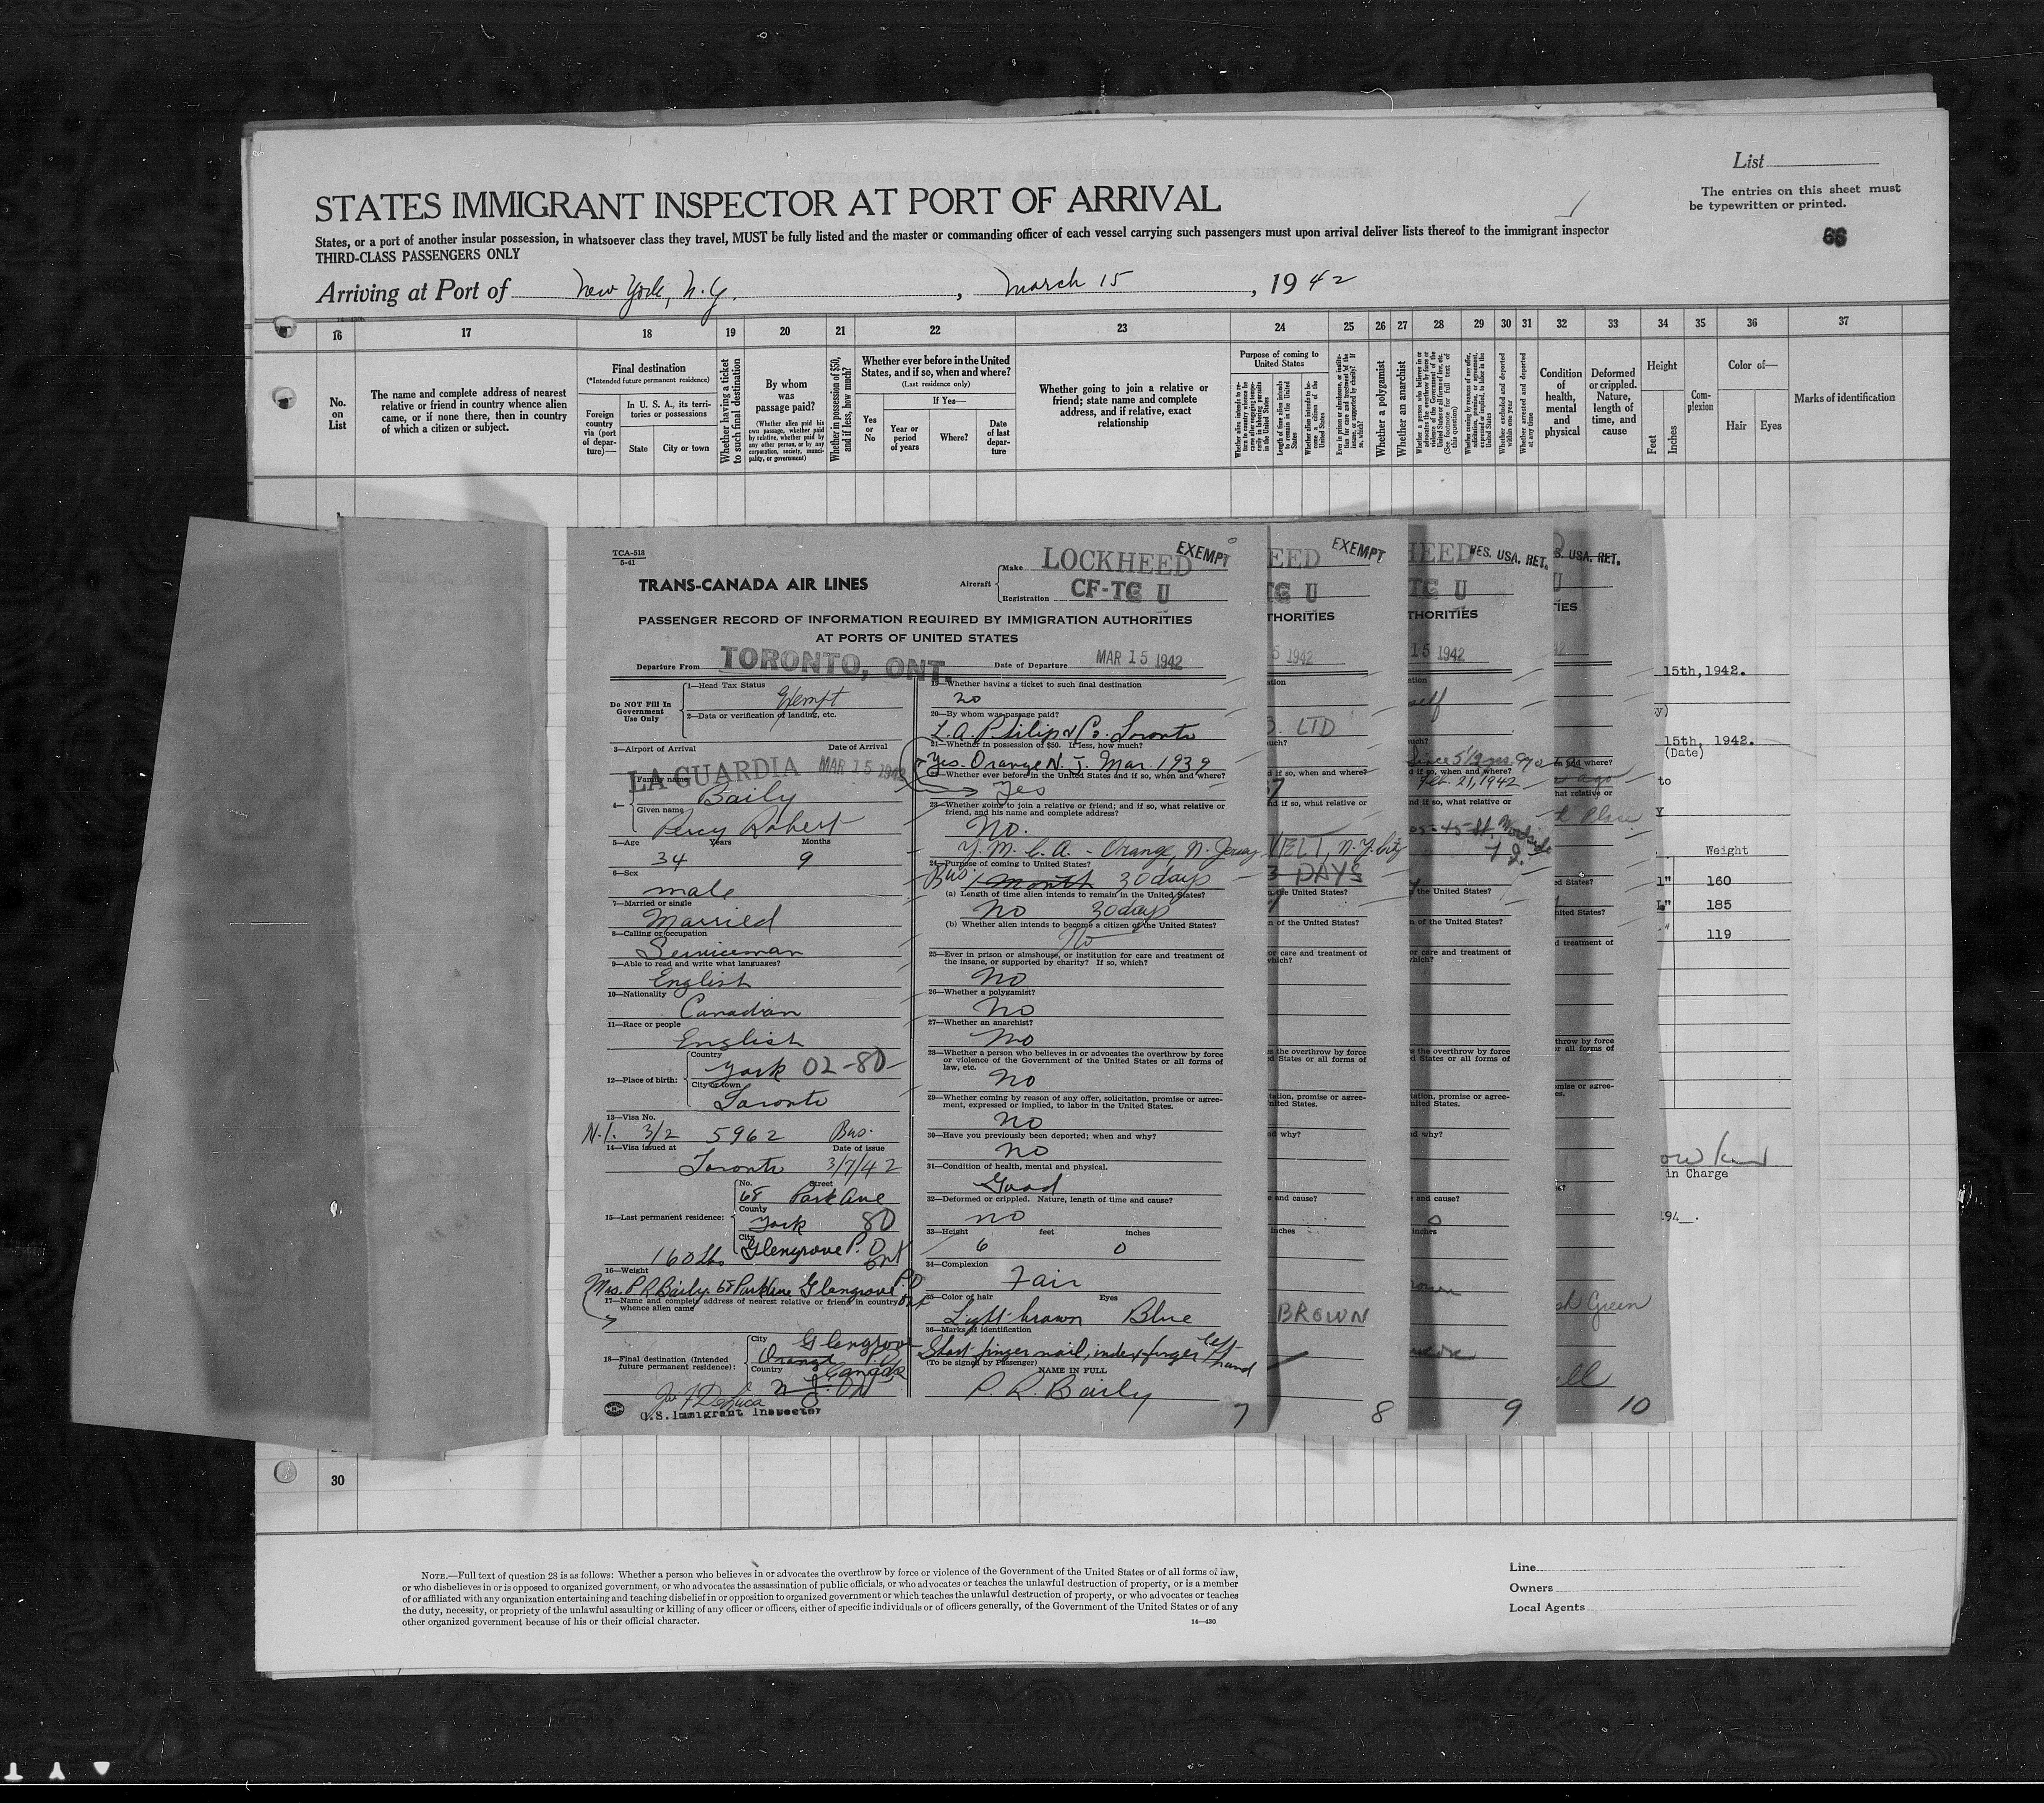 List
The entries on this sheet must
be typewritten or printed.
66
STATES IMMIGRANT INSPECTOR AT PORT OF ARRIVAL
States, or a port of another insular possession, in whatsoever class they travel, MUST be fully listed and the master or commanding officer of each vessel carrying such passengers must upon arrival deliver lists thereof to the immigrant inspector
THIRD-CLASS PASSENGERS ONLY
Arriving at Port of New York, N.Y. , March 15 , 1942
16 17 18 19 20 21 22 23 24 25 26 27 28 29 30 31 32 33 34 35 36 37
No. on List
The name and complete address of nearest
relative or friend in country whence alien
came, or if none there, then in country
of which a citizen or subject.
Final destination
(*Intended future permanent residence)
Foreign country via (port of departure)—
In U. S. A., its territories or possessions
State
City or town
Whether having a ticket to such final destination
By whom was passage paid?
(Whether alien paid his own passage, whether paid by relative, whether paid by any other person, or by any corporation, society, municipality, or government)
Whether in possession of $50, and if less, how much?
Whether ever before in the United States, and if so, when and where?
(Last residence only)
Yes or No
If Yes—
Year or period of years
Where?
Date of last departure
Whether going to join a relative or
friend; state name and complete
address, and if relative, exact
relationship
Purpose of coming to United States
Length of time alien intends to remain in the United States
Whether a polygamist
Whether an anarchist
Condition of health, mental and physical
Deformed or crippled. Nature, length of time, and cause
Height
Feet
Inches
Complexion
Color of—
Hair
Eyes
Marks of identification
TCA-518
5-41
TRANS-CANADA AIR LINES
Aircraft
Make LOCKHEED
EXEMPT
Registration CF-TC U
PASSENGER RECORD OF INFORMATION REQUIRED BY IMMIGRATION AUTHORITIES
AT PORTS OF UNITED STATES
Departure From TORONTO, ONT. Date of Departure MAR 15 1942
Do NOT Fill In
Government
Use Only
1—Head Tax Status
Exempt
2—Data or verification of landing, etc.
3—Airport of Arrival Date of Arrival
LA GUARDIA MAR 15 1942
4— Family name
Baily
Given name
Percy Robert
5—Age Years Months
34 9
6—Sex
male
7—Married or single
Married
8—Calling or occupation
Serviceman
9—Able to read and write what languages?
English
10—Nationality
Canadian
11—Race or people
English
12—Place of birth:
Country
York 02-80
City or town
Toronto
13—Visa No.
N.I. 3/2 5962 Bus.
14—Visa issued at Date of issue
Toronto 3/7/42
15—Last permanent residence:
No. Street
68 Park Ave
County
York 80
City
Glengrove P.O Ont
160 Lbs
16—Weight
Mrs. P R Baily. 68 Park Ave Glengrove P.O Ont
17—Name and complete address of nearest relative or friend in country
whence alien came
18—Final destination (Intended
future permanent residence):
City
Glengrove
Orange P.O
Country
Canada
N J. Ont
U.S. Immigrant Inspector
19—Whether having a ticket to such final destination
no
20—By whom was passage paid?
L.A. Philip & Co. Toronto
21—Whether in possession of $50. If less, how much?
Yes. Orange N. J. Mar. 1939
22—Whether ever before in the United States and if so, when and where?
Yes
23—Whether going to join a relative or friend; and if so, what relative or
friend, and his name and complete address?
No.
Y.M.C.A. - Orange, N. Jersey
24—Purpose of coming to United States?
Bus. 1 Month 30 days
(a) Length of time alien intends to remain in the United States?
No 30 days
(b) Whether alien intends to become a citizen of the United States?
No
25—Ever in prison or almshouse, or institution for care and treatment of
the insane, or supported by charity? If so, which?
No
26—Whether a polygamist?
No
27—Whether an anarchist?
No
28—Whether a person who believes in or advocates the overthrow by force
or violence of the Government of the United States or all forms of
law, etc.
No
29—Whether coming by reason of any offer, solicitation, promise or agree-
ment, expressed or implied, to labor in the United States.
No
30—Have you previously been deported; when and why?
No
31—Condition of health, mental and physical.
Good
32—Deformed or crippled. Nature, length of time and cause?
no
33—Height feet inches
6 0
34—Complexion
Fair
35—Color of hair Eyes
Light brown Blue
36—Marks of identification
Short finger nail, index finger left hand
(To be signed by Passenger)
NAME IN FULL
P. R. Baily
7
EXEMPT
1942
LTD
N.Y. City
3 DAYS
BROWN
8
RES. USA. RET.
15 1942
Feb. 21, 1942
9
USA. RET.
Green
10
15th, 1942.
15th, 1942.
(Date)
to
Weight
160
185
119
in Charge
194_.
30
NOTE.—Full text of question 28 is as follows: Whether a person who believes in or advocates the overthrow by force or violence of the Government of the United States or of all forms of law,
or who disbelieves in or is opposed to organized government, or who advocates the assassination of public officials, or who advocates or teaches the unlawful destruction of property, or is a member
of or affiliated with any organization entertaining and teaching disbelief in or opposition to organized government or which teaches the unlawful destruction of property, or who advocates or teaches
the duty, necessity, or propriety of the unlawful assaulting or killing of any officer or officers, either of specific individuals or of officers generally, of the Government of the United States or of any
other organized government because of his or their official character.
14—430
Line
Owners
Local Agents